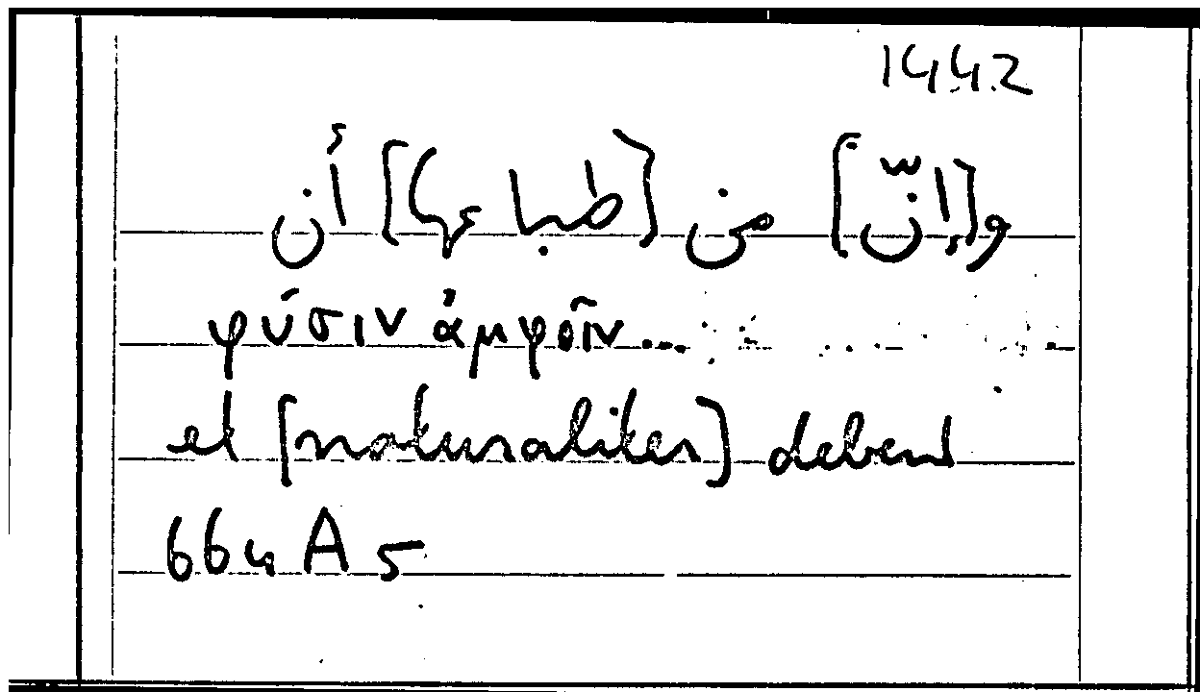 1442
و[إنّ] من [طباعها] أن
φύσιν ἀμφοῖν...
et [naturaliter] debent
664 A 5